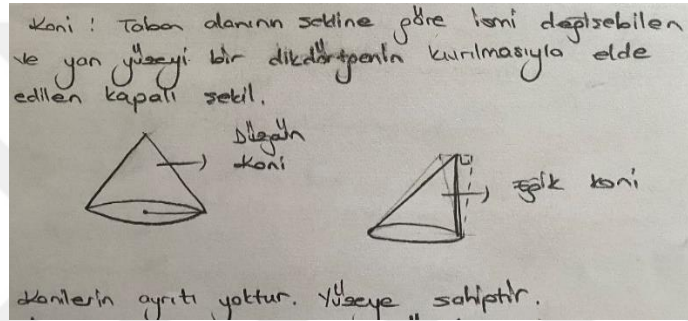 Koni : Taban alanının şekline göre ismi değişebilen
ve yan yüzeyi bir dikdörtgenin kıvrılmasıyla elde
edilen kapalı şekil.
Düzgün
koni
eğik koni
Konilerin ayrıtı yoktur. Yüzeye sahiptir.